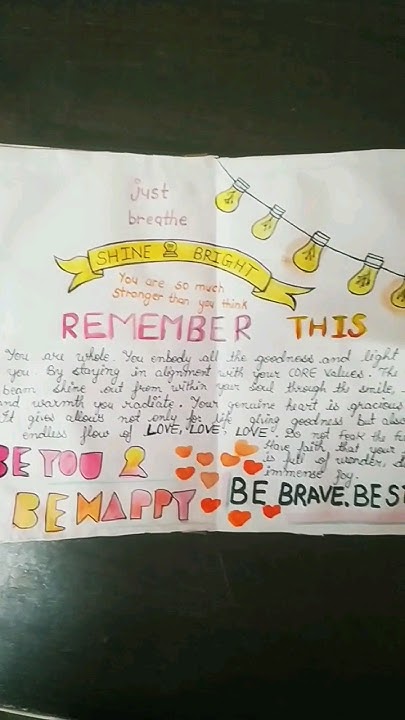 just
breathe
SHINE BRIGHT
You are so much
stronger than you think
REMEMBER THIS
You are whole. You enbody all the goodness and light
you. By staying in alignment with your CORE VALUES. The
beam shine out from within your soul through the smile
and warmth you radiate. Your genuine heart is gracious
It gives allows not only for life giving goodness but also
endless flow of LOVE, LOVE, LOVE. Do not
Have faith that your
is full of wonder,
immense joy.
BE YOU
BE HAPPY
BE BRAVE. BE